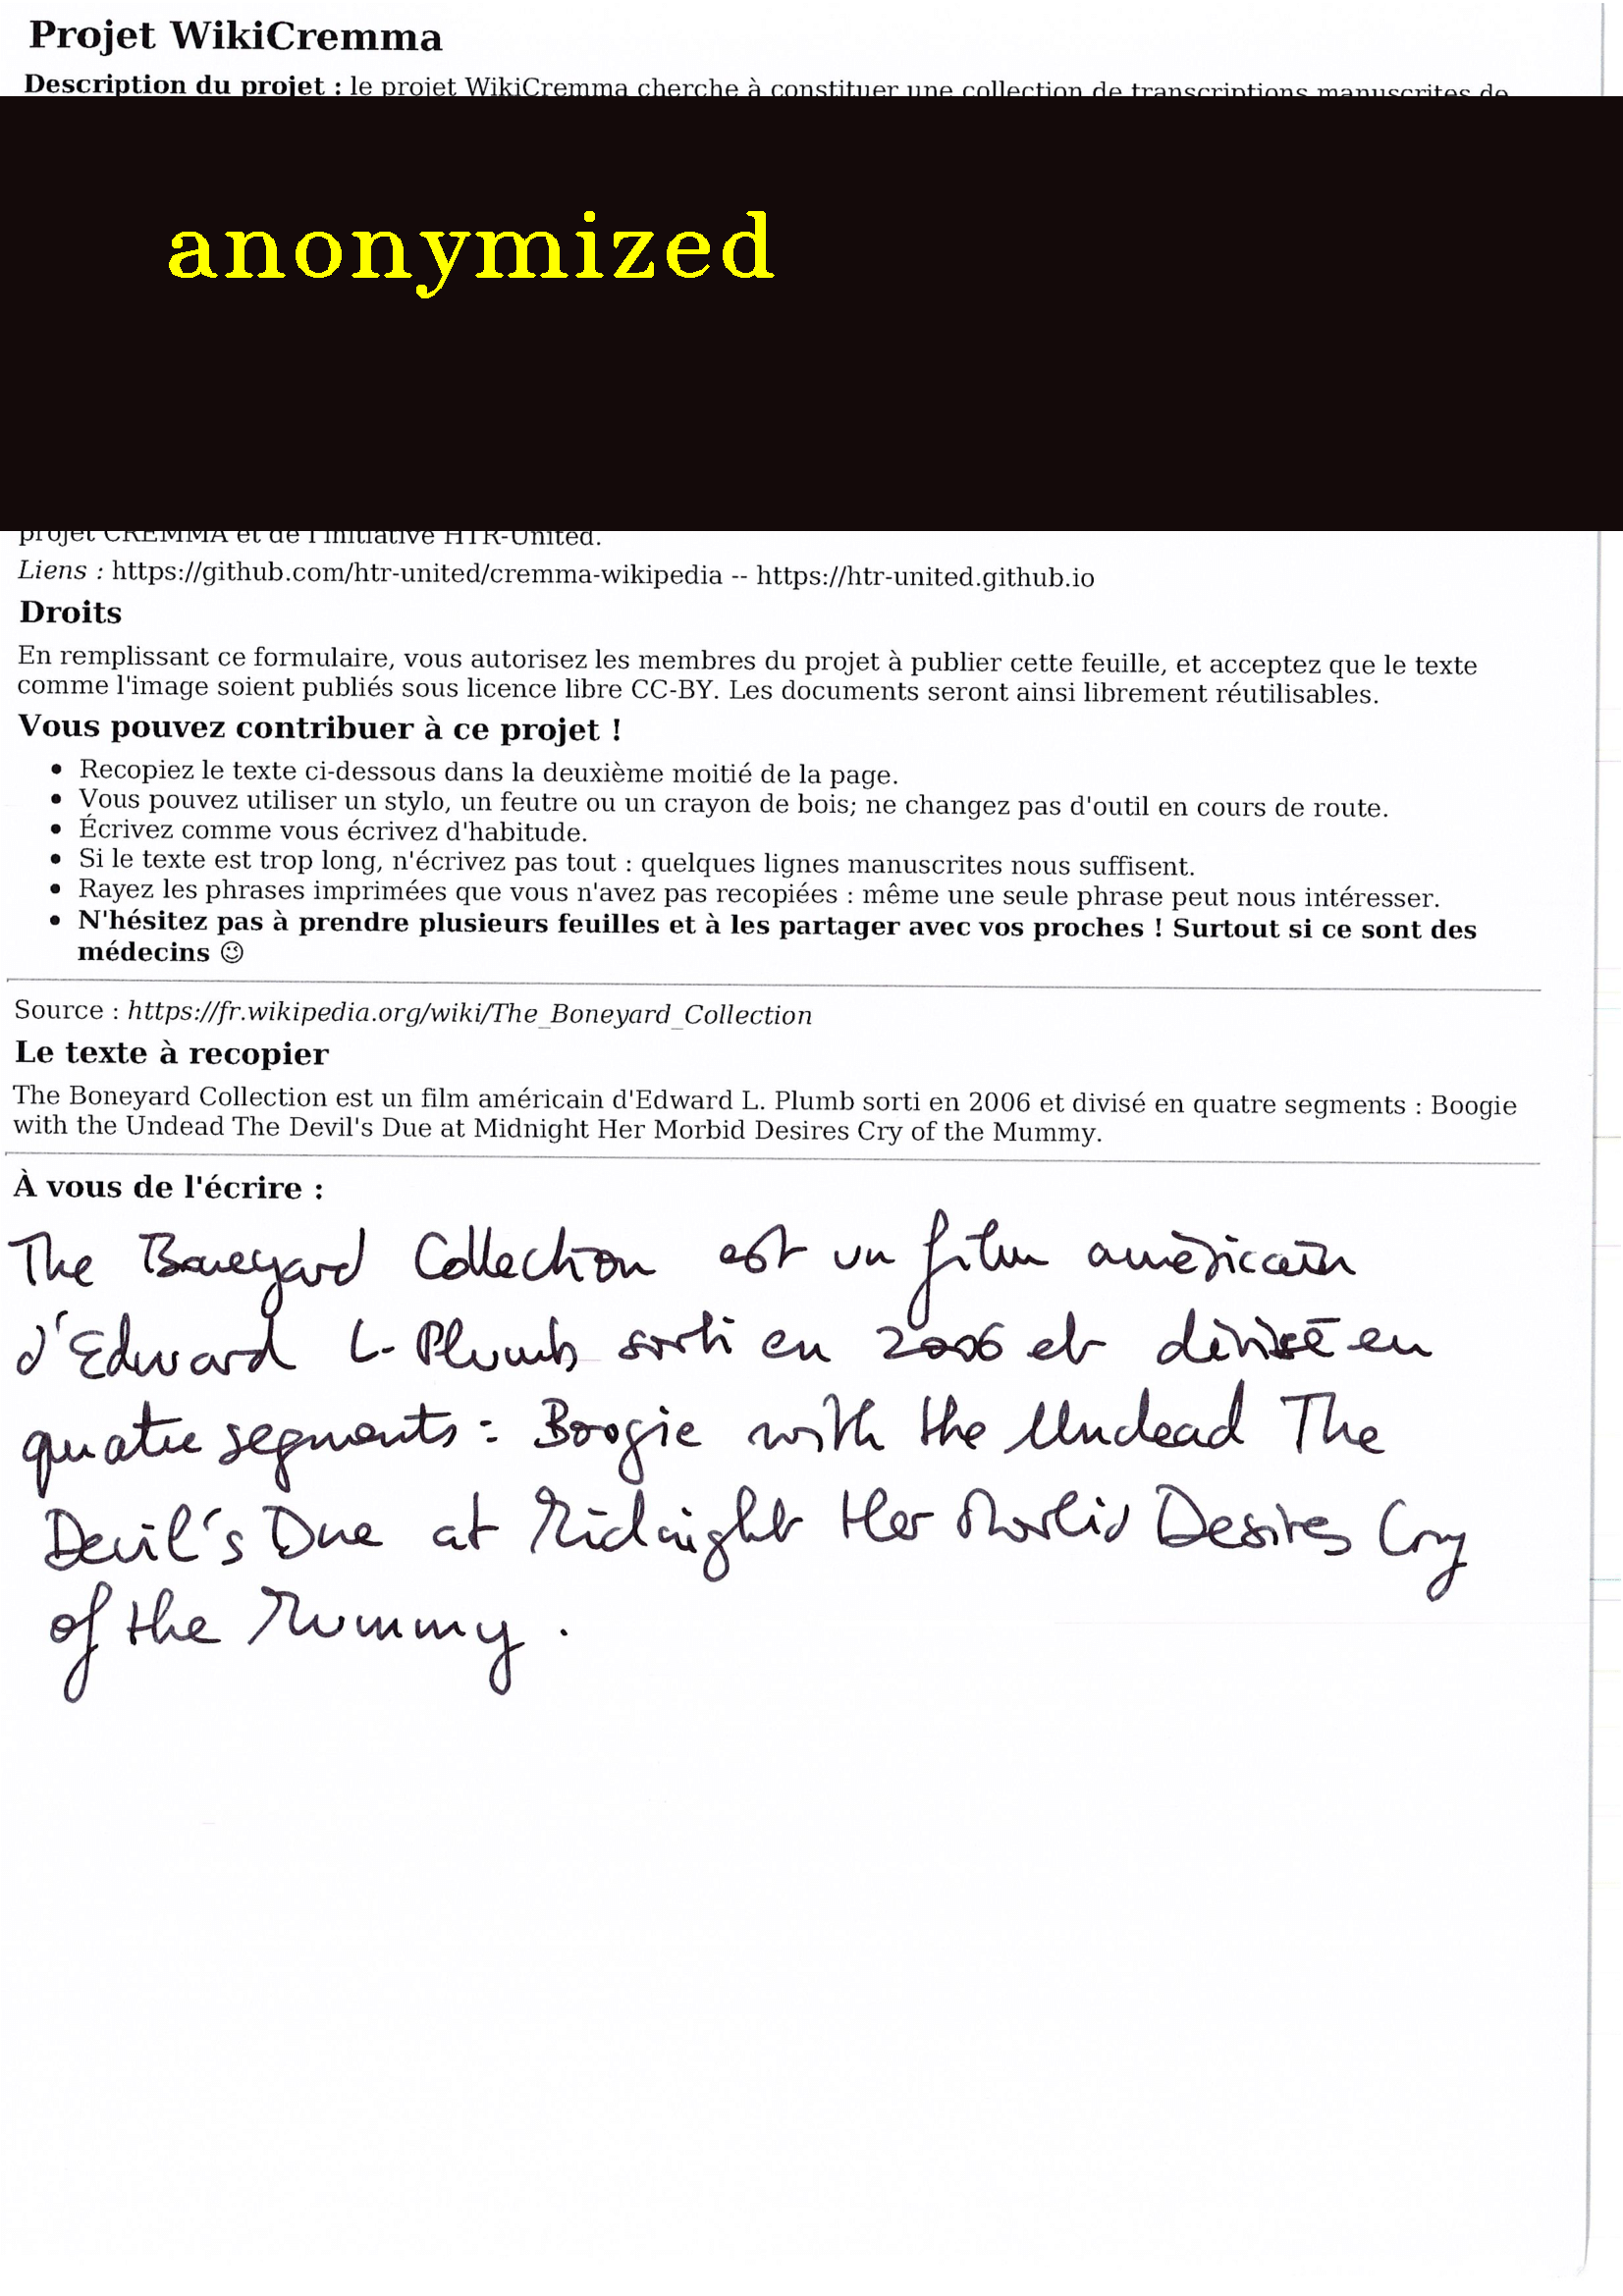 Projet WikiCremma
Description du projet : le projet WikiCremma cherche à constituer une collection de transcriptions manuscrites de
anonymized
projet CREMMA et de l'initiative HTR-United.
Liens : https://github.com/htr-united/cremma-wikipedia -- https://htr-united.github.io
Droits
En remplissant ce formulaire, vous autorisez les membres du projet à publier cette feuille, et acceptez que le texte
comme l'image soient publiés sous licence libre CC-BY. Les documents seront ainsi librement réutilisables.
Vous pouvez contribuer à ce projet !
• Recopiez le texte ci-dessous dans la deuxième moitié de la page.
• Vous pouvez utiliser un stylo, un feutre ou un crayon de bois; ne changez pas d'outil en cours de route.
• Écrivez comme vous écrivez d'habitude.
• Si le texte est trop long, n'écrivez pas tout : quelques lignes manuscrites nous suffisent.
• Rayez les phrases imprimées que vous n'avez pas recopiées : même une seule phrase peut nous intéresser.
• N'hésitez pas à prendre plusieurs feuilles et à les partager avec vos proches ! Surtout si ce sont des
médecins 😉
Source : https://fr.wikipedia.org/wiki/The_Boneyard_Collection
Le texte à recopier
The Boneyard Collection est un film américain d'Edward L. Plumb sorti en 2006 et divisé en quatre segments : Boogie
with the Undead The Devil's Due at Midnight Her Morbid Desires Cry of the Mummy.
À vous de l'écrire :
The Boneyard Collection est un film américain
d'Edward L. Plumb sorti en 2006 et divisé en
quatre segments : Boogie with the Undead The
Devil's Due at Midnight Her Morbid Desires Cry
of the Mummy.